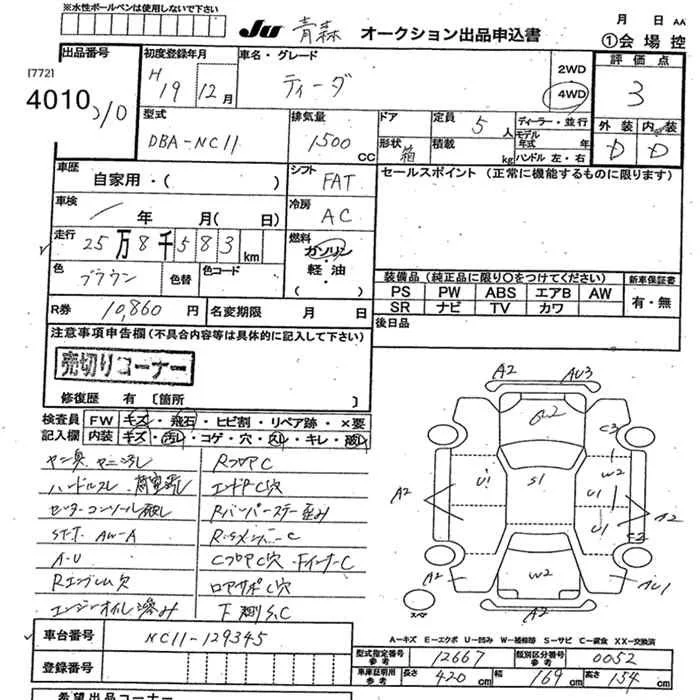 ※水性ボールペンは使用しないで下さい
JU 青森 オークション出品申込書
月 日 AA
①会場控
出品番号 初度登録年月 車名・グレード 2WD 4WD 評価点
[772]
4010
H 19 12月 ティーダ 3
型式 排気量 ドア 定員 5人 ディーラー・並行 外装 内装
DBA-NC11 1500 CC 形状 箱 積載 kg モデル年式 年 ハンドル 左・右 D D
車歴 シフト セールスポイント (正常に機能するものに限ります)
自家用・( ) FAT
車検 年 月( 日) 冷房 AC
走行 25万8千583km 燃料 ガソリン・軽油・( )
色 ブラウン 色替 色コード
装備品 (純正品に限り○をつけてください) 新車保証書
PS PW ABS エアB AW 有・無
SR ナビ TV カワ
R券 10,860円 名変期限 月 日
後日品
注意事項申告欄(不具合内容等は具体的に記入して下さい)
売切りコーナー
修復歴 有 〔箇所 〕
検査員 FW キズ・飛石・ヒビ割・リペア跡・×要
記入欄 内装 キズ・汚レ・コゲ・穴・スレ・キレ・破レ
ヤニ臭、ヤニ汚レ RフロアC
ハンドルスレ エンドPC穴
センターコンソール破レ Rバンパーステー歪み
AW-A
A-U CフロアC・FインナーC
Rエンブレム欠 ロアサポC穴
エンジンオイル滲み 下廻S.C
A2 AU3
W2 C3
A2 U1 S1 W2 U1 U1 A2
C2
A2 W2 AU1
スペア A2
車台番号 NC11-129345
登録番号
A-キズ E-エクボ U-凹み W-補修跡 S-サビ C-腐食 XX-交換済
型式指定番号 参考 12667 類別区分番号 参考 0052
車庫証明用 参考 長さ 420cm 幅 169cm 高さ 154cm
希望出品コーナー